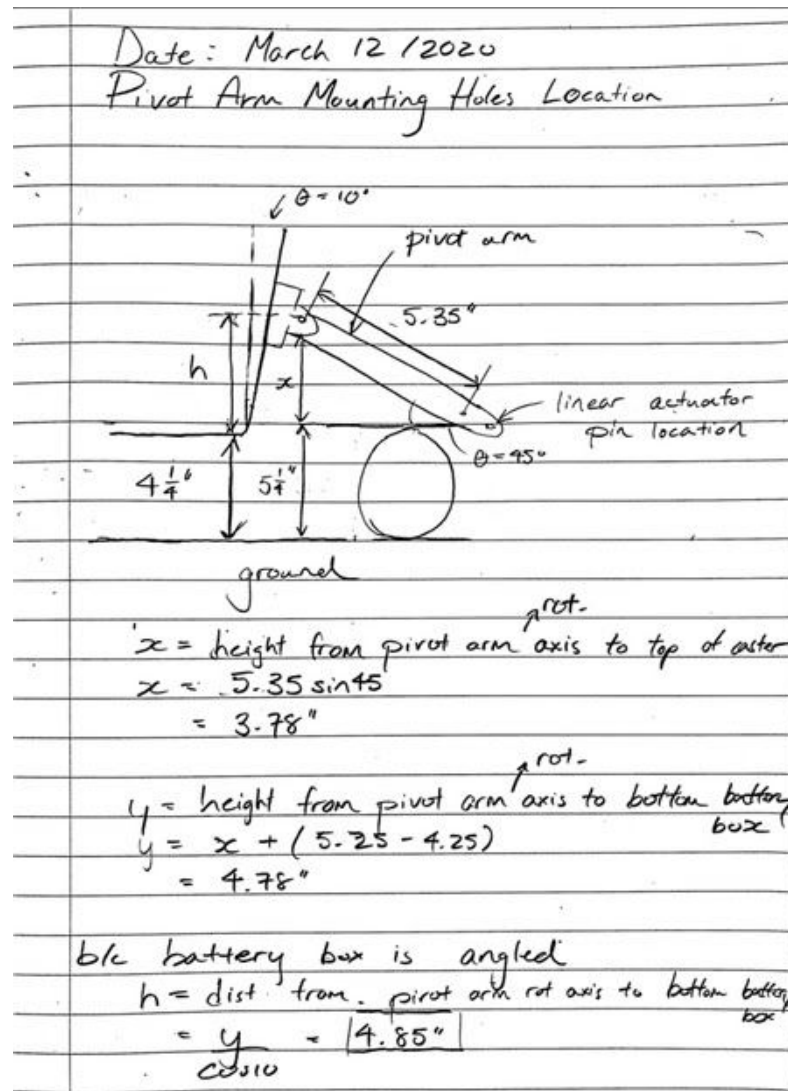 Date: March 12/2020
Pivot Arm Mounting Holes Location
θ = 10°
pivot arm
5.35"
h
x
linear actuator
pin location
θ=45°
4 1/4"
5 1/4"
ground
rot.
x = height from pivot arm axis to top of caster
x = 5.35 sin45
= 3.78"
rot.
y = height from pivot arm axis to bottom battery
box
y = x + (5.25 - 4.25)
= 4.78"
b/c battery box is angled
h = dist. from pivot arm rot axis to bottom battery
box
= y/cos10 = 4.85"